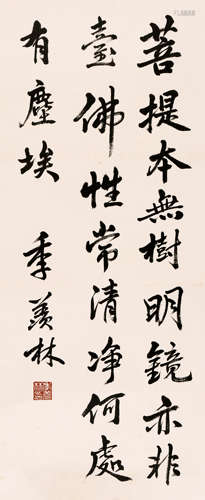 菩提本無樹明鏡亦非
臺佛性常清净何處
有塵埃
季羨林